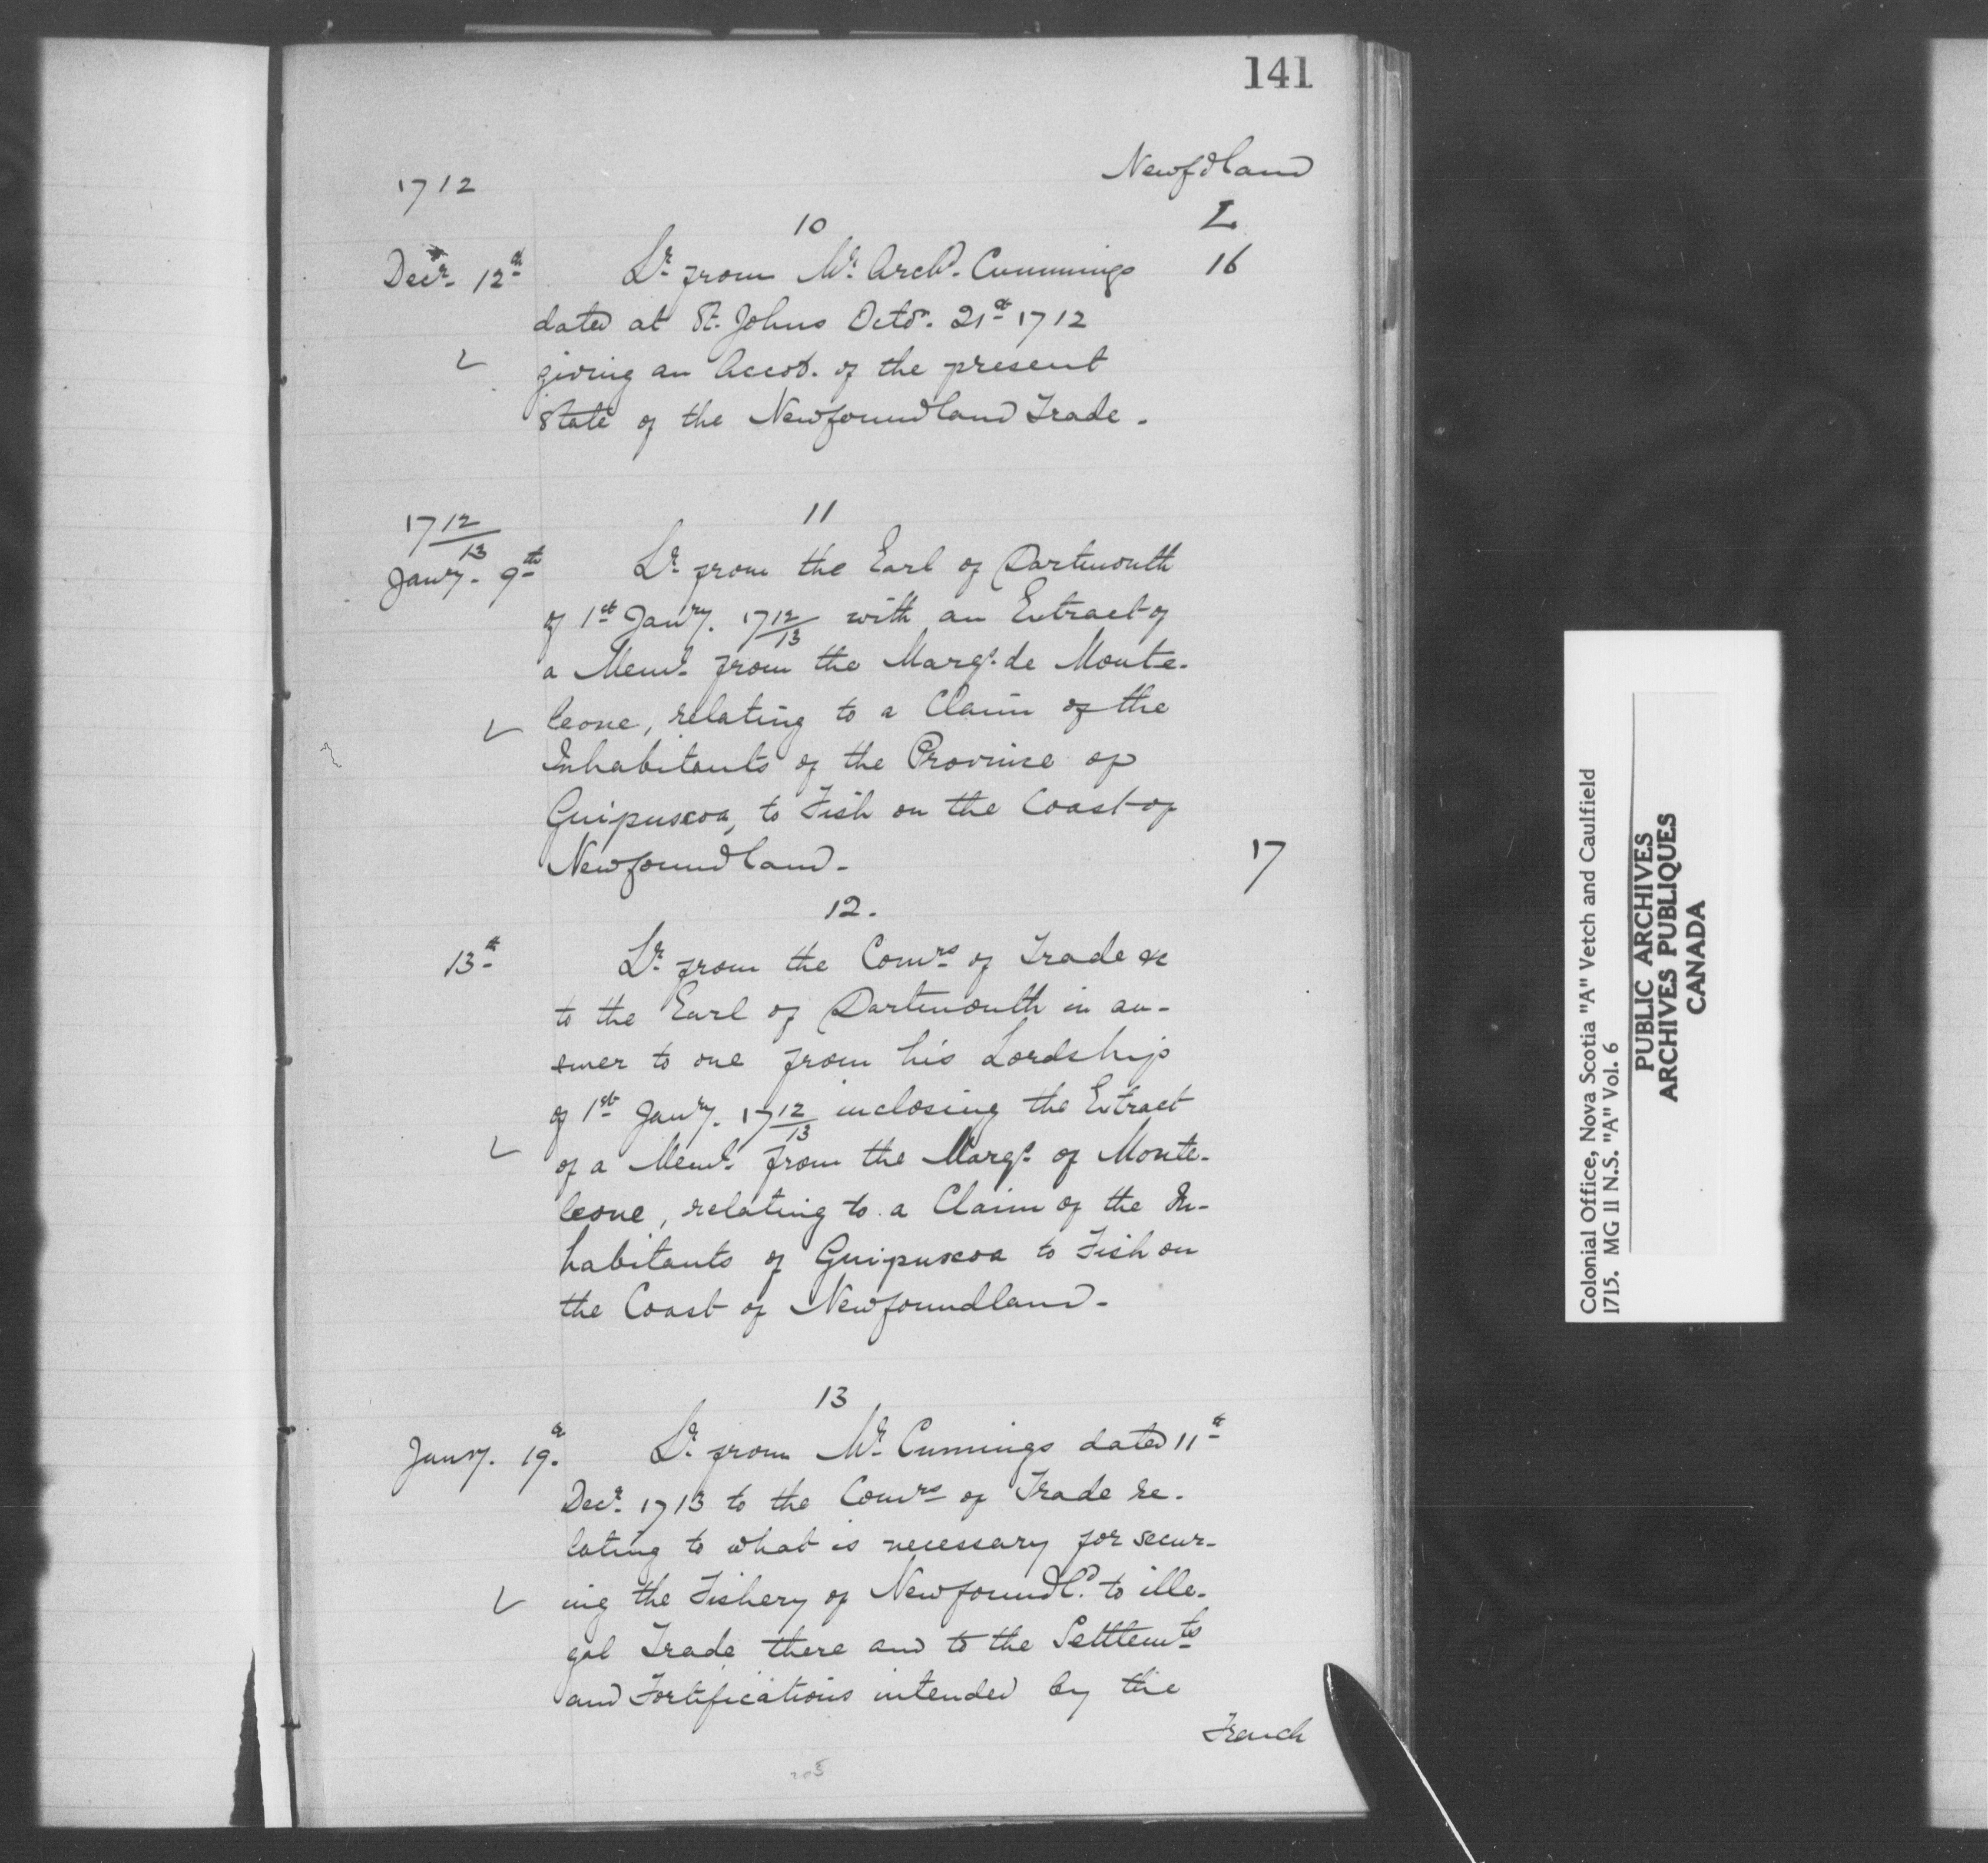 141
Newfdland
1712
L
10
Decr. 12th Lr. from Mr. Archd. Cummings 16
dated at St. Johns Octor. 21st 1712
giving an Accot. of the present
State of the Newfoundland Trade.
11
17 12/13
Janry. 9th Lr. from the Earl of Dartmouth
of 1st Janry. 17 12/13 with an Extract of
a Meml. from the Marqs. de Monte-
leone, relating to a Claim of the
Inhabitants of the Province of
Guipuscoa, to Fish on the Coast of
Newfoundland. 17
12.
13th Lr. from the Comrs. of Trade &c
to the Earl of Dartmouth in an-
swer to one from his Lordship
of 1st Janry. 17 12/13 inclosing the Extract
of a Meml. from the Marqs. of Monte-
leone, relating to a Claim of the In-
habitants of Guipuscoa to Fish on
the Coast of Newfoundland.
13
Janry. 19th Lr. from Mr. Cumings dated 11th
Decr. 1713 to the Comrs. of Trade re-
lating to what is necessary for secur-
ing the Fishery of Newfoundld. to ille-
gal Trade there and to the Settlemts.
and Fortifications intended by the
French
Colonial Office, Nova Scotia "A" Vetch and Caulfield
1715. MG II N.S. "A" Vol. 6
PUBLIC ARCHIVES
ARCHIVES PUBLIQUES
CANADA